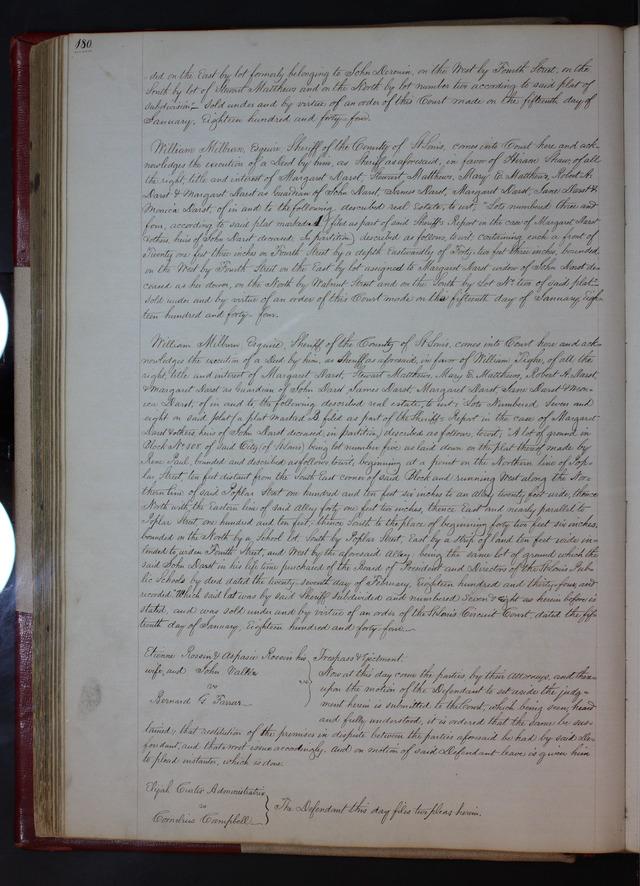 180
ded on the East by lot formerly belonging to John Deronin, on the West by Fourth Street, on the
South by lot of Stewart Matthews and on the North by lot number two according to said plat of
subdivision" Sold under and by virtue of an order of this Court made on the fifteenth day of
January, Eighteen hundred and forty-four.
William Milburn, Esquire, Sheriff of the County of St Louis, comes into Court here and ack-
nowledges the execution of a Deed by him, as Sheriff as aforesaid, in favor of Hiram Shaw, of all
the right, title and interest of Margaret Darst, Stewart Matthews, Mary E. Matthews, Robert H.
Darst & Margaret Darst as Guardian of John Darst, James Darst, Margaret Darst, Jane Darst &
Monica Darst, of in and to the following described real Estate, to wit: "Lots numbered three and
four, according to said plat marked A (filed as part of said Sheriff's Report in the case of Margaret Darst
& others, heirs of John Darst deceased In partition) described as follows, to wit, containing each a front of
Twenty one feet three inches on Fourth Street by a depth Eastwardly of Forty-two feet three inches, bounded
on the West by Fourth Street on the East by lot assigned to Margaret Darst widow of John Darst de-
ceased as her dower, on the North by Walnut Street and on the South by Lot No. two of said plat"
Sold under and by virtue of an order of this Court made on this fifteenth day of January Eigh-
teen hundred and forty-four.
William Milburn Esquire, Sheriff of the County of St Louis, comes into Court here and ack-
nowledges the execution of a Deed by him, as Sheriff as aforesaid, in favor of William Tighe, of all the
right, title and interest of Margaret Darst, Stewart Matthews, Mary E. Matthews, Robert H. Darst,
& Margaret Darst as Guardian of John Darst James Darst, Margaret Darst, Jane Darst & Mon-
ica Darst, of in and to the following described real estate, to wit: "Lots Numbered Seven and
eight on said plat (a plat marked B filed as part of the Sheriff's Report in the case of Margaret
Darst & others heirs of John Darst deceased, in partition) described as follows, to wit; "A lot of ground in
Block No 108 of said City (of St Louis) being lot number five as laid down on the plat thereof made by
Rene Paul, bounded and described as follows to wit; beginning at a point on the Northern line of Pop-
lar Street, ten feet distant from the South East corner of said Block and running West along the Nor-
thern line of said Poplar Street one hundred and ten feet six inches to an alley twenty feet wide, thence
North with the Eastern line of said alley forty one feet two inches, thence East and nearly parallel to
Poplar Street one hundred and ten feet; thence South to the place of beginning forty two feet six inches,
bounded on the North by a School lot South by Poplar Street, East by a strip of land ten feet wide in-
tended to widen Fourth Street, and West by the aforesaid alley. being the same lot of ground which the
said John Darst in his life time purchased of the Board of President and Directors of the St Louis Pub-
lic Schools by deed dated the twenty-seventh day of February, Eighteen hundred and thirty-four, and
recorded Which said lot was by said Sheriff subdivided and numbered Seven & Eight as herein before is
stated, and was sold under and by virtue of an order of the St Louis Circuit Court, dated the fif-
teenth day of January, Eighteen hundred and forty-four
Etienne Rossin & Aspasie Rossin his
wife, and John
vs
Bernard G Farrar
Trespass & Ejectment.
Now at this day come the parties by their Attorneys, and there-
upon the motion of the Defendant to set aside the judg-
ment herein is submitted to the Court, which being seen, heard
and fully understood, it is ordered that the same be sus-
tained; that restitution of the premises in dispute between the parties aforesaid be had by said De-
fendant, and that a writ issue accordingly. And on motion of said Defendant leave is given him
to plead instanter, which is done.
Administratrix
vs
Cornelius Campbell
The Defendant this day files two pleas herein.